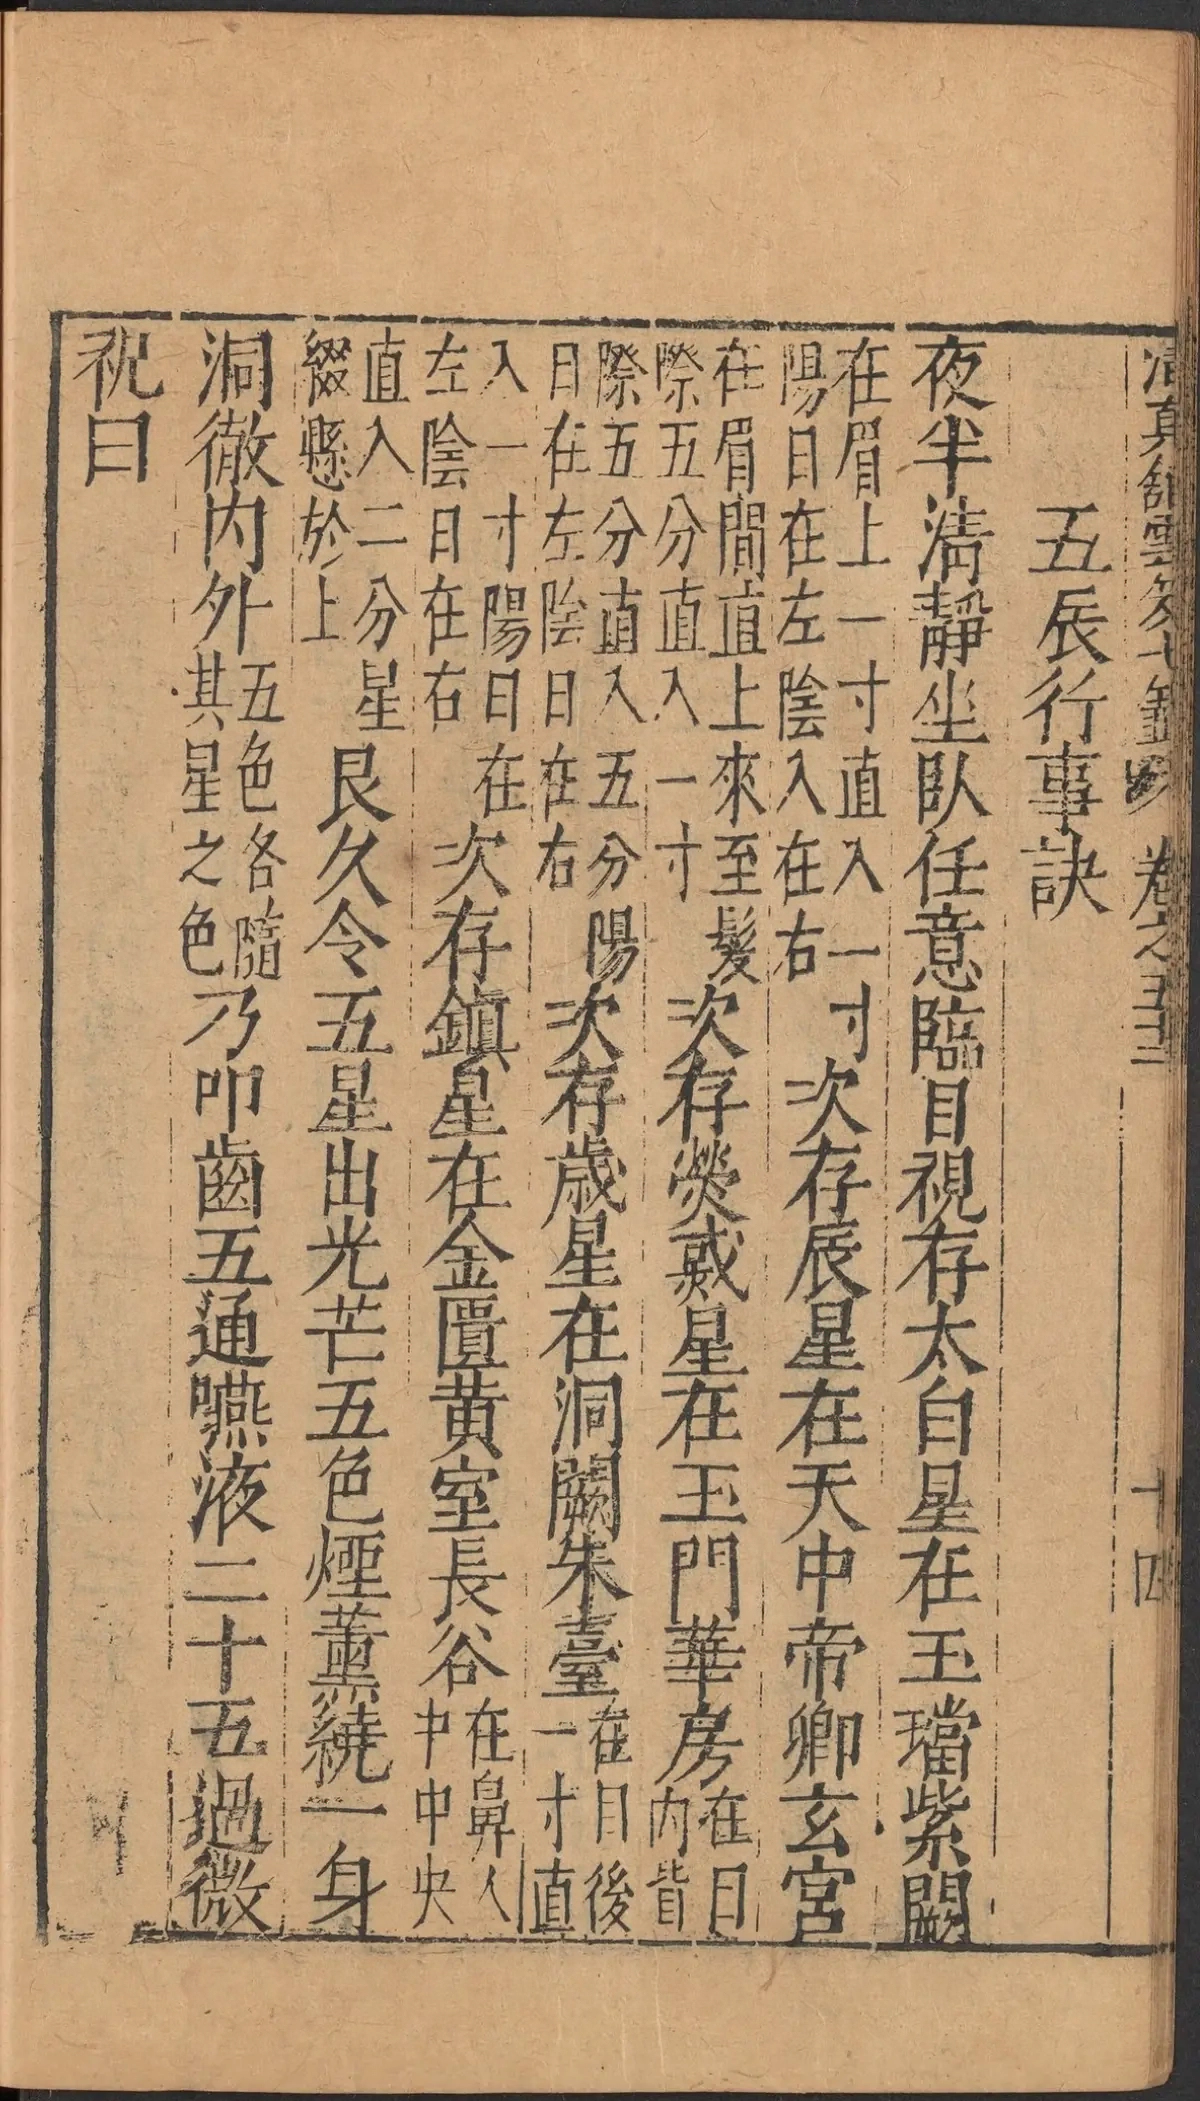 清真舘雲笈七籤 卷之五十二 十四
五辰行事訣
夜半清靜坐臥任意臨目視存太白星在玉璫紫闕
在眉上一寸直入一寸陽日在左陰入在右次存辰星在天中帝卿玄宮
在眉間直上來至髮際五分直入一寸次存熒惑星在玉門華房在目內眥
際五分直入五分陽日在左陰日在右次存歲星在洞闕朱臺在目後一寸直
入一寸陽日在左陰日在右次存鎮星在金匱黃室長谷在鼻人中中央
直入二分星綴懸於上艮久令五星出光芒五色煙薰繞一身
洞徹內外五色各隨其星之色乃叩齒五通嚥液二十五過微
祝曰